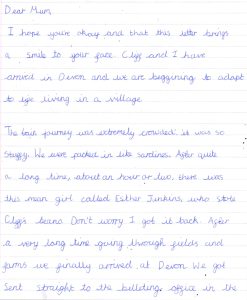 Dear Mum,
I hope you're okay and that this letter brings
a smile to your face. Clyff and I have
arrived in Devon and we are beggining to adapt
to life living in a village.
The train journey was extremely crowded. it was so
Stuffy. We were packed in like sardines. After quite
a long time, about an hour or two, there was
this mean girl called Esther Junkins, who stole
Clyff's teans. Don't worry I got it back. After
a very long time going through fields and
farms we finally arrived at Devon. We got
Sent straight to the billeting office in the